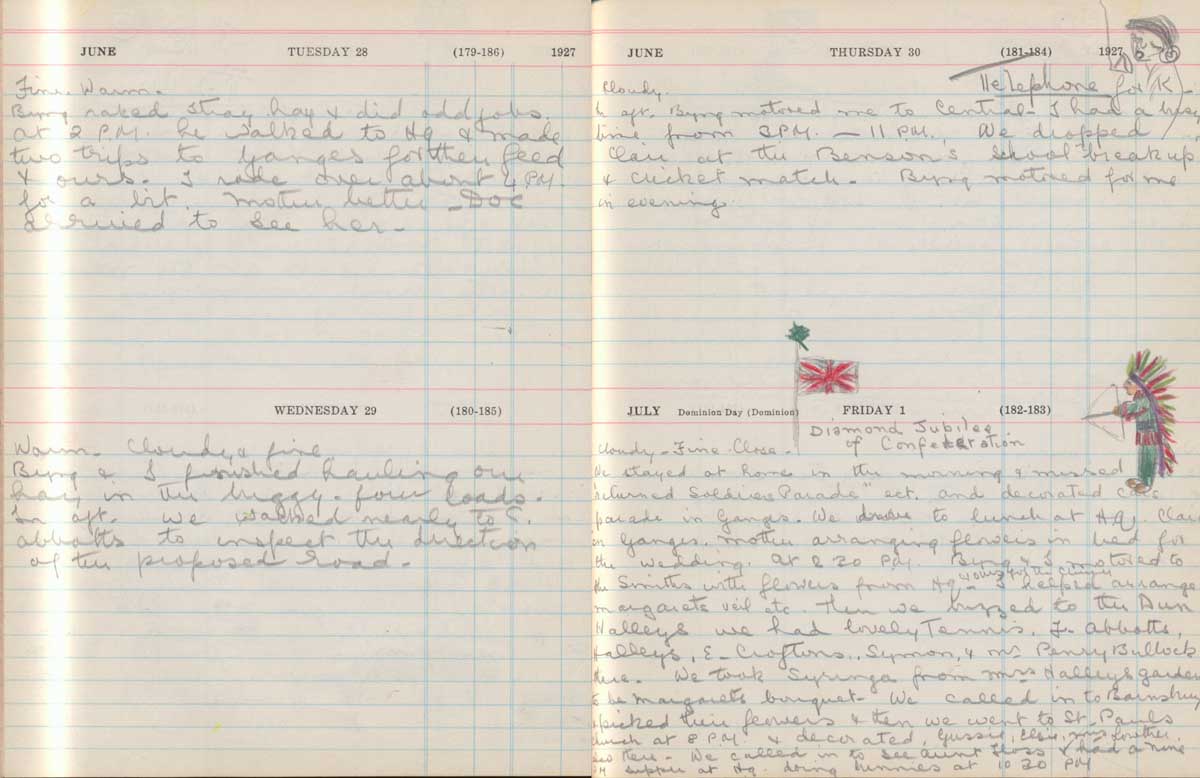 JUNE TUESDAY 28 (179-186) 1927
Fine. Warm.
Byng raked stray hay & did odd jobs.
at 2 P.M. he walked to Hq & made
two trips to Ganges for their feed
& ours. I rode over about 4 PM.
for a bit. Mother better - Doc
arrived to see her.
WEDNESDAY 29 (180-185)
Warm. Cloudy & fine
Byng & I finished hauling our
hay, in the buggy. four loads.
In aft. we walked nearly to S.
abbotts to inspect the direction
of the proposed road.
JUNE THURSDAY 30 (181-184) 1927
Telephone for K
Cloudy.
In aft. Byng motored me to Central - I had a
time from 3 PM. - 11 P.M. We dropped
Clair at the Benson's school break up
& cricket match. Byng motored for me
in evening.
JULY Dominion Day (Dominion) FRIDAY 1 (182-183)
Diamond Jubilee
of Confederation
Cloudy - Fine. Close.
We stayed at home in the morning & missed
returned Soldiers Parade" ect. and decorated cars
parade in Ganges. We drove to lunch at HQ. Clair
in Ganges. Mother arranging flowers in bed for
the wedding. at 2 30 P.M. Byng & I motored to
the Smiths with flowers from Hq - I helped arrange
margarets veil etc. Then we buzzed to the Dun
Halleys we had lovely Tennis. F. abbotts,
Halleys, E. Croftons, Symon, & Penry Bullock
there. We took Syringa from Mrs Halleys garden
to be margarets bouquet - We called in to Bainsbury
& picked their flowers & then we went to St. Pauls
church at 8 P.M. & decorated, Gussie, Elsie,
also there. We called in to see aunt Floss & had a nine
PM supper at Hq. doing bunnies at 10 30 PM